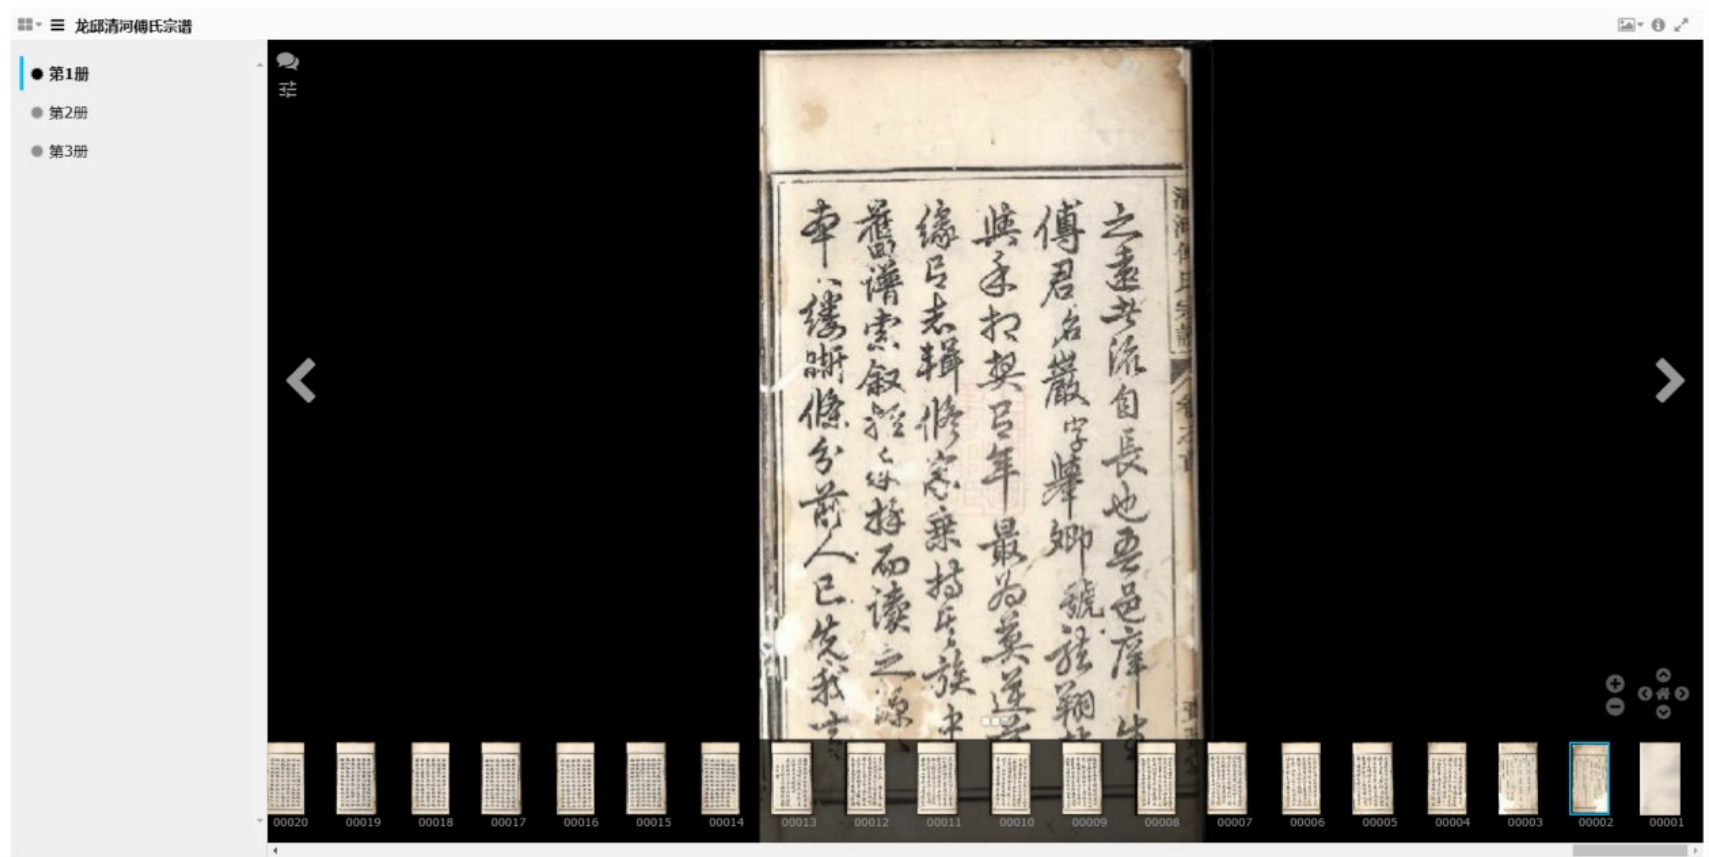 龙邱清河傅氏宗谱
第1册
第2册
第3册
清河傅氏宗譜
卷之首
之遠其流自長也吾邑庠生
傅君名巖字肇卿號 翔
與余相契 年最為莫逆
緣 志輯修家乘持 族中
舊譜 叙 余 而讀之源
本 縷晰條分前人已先我
00020
00019
00018
00017
00016
00015
00014
00013
00012
00011
00010
00009
00008
00007
00006
00005
00004
00003
00002
00001